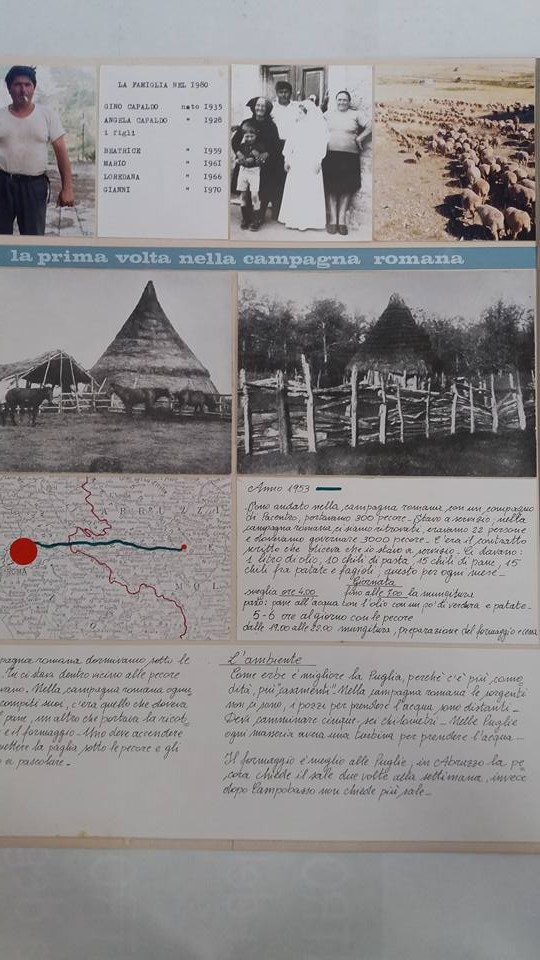 LA FAMIGLIA NEL 1980
GINO CAPALDO nato 1935
ANGELA CAPALDO " 1928
i figli
BEATRICE " 1959
MARIO " 1961
LOREDANA " 1966
GIANNI " 1970
la prima volta nella campagna romana
ABRUZZI
Anno 1953
Sono andato nella campagna romana con un compagno
di Pacentro, portavamo 300 pecore. Stavo a servizio, nella
campagna romana ci siamo ritrovati, eravamo 22 persone
e dovevamo governare 3000 pecore. C'era il contratto
scritto che diceva che io stavo a servizio. Ci davano:
1 litro di olio, 10 chili di pasta, 15 chili di pane, 15
chili fra patate e fagioli, questo per ogni mese.
Giornata
sveglia ore 4.00 fino alle 7.00 la mungitura
pane all'acqua con l'olio con un po' di verdura e patate.
5-6 ore al giorno con le pecore
dalle 19.00 alle mungitura, preparazione del formaggio e cena
campagna romana dormivamo sotto le
ci stava dentro vicino alle pecore
Nella campagna romana ogni
compiti suoi, c'era quello che doveva
pane, un altro che portava la ricot-
e il formaggio. Uno deve accendere
mettere la paglia sotto le pecore e gli
a pascolare.
L'ambiente
Come erbe è migliore la Puglia, perchè c'è più como
dità, più Nella campagna romana le sorgenti
non ci sono, i pozzi per prendere l'acqua sono distanti.
Devi camminare cinque, sei chilometri. Nelle Puglie
ogni masseria aveva una turbina per prendere l'acqua.
Il formaggio è meglio alle Puglie, in Abruzzo la pe
cora chiede il sale due volte alla settimana, invece
dopo Campobasso non chiede più sale.